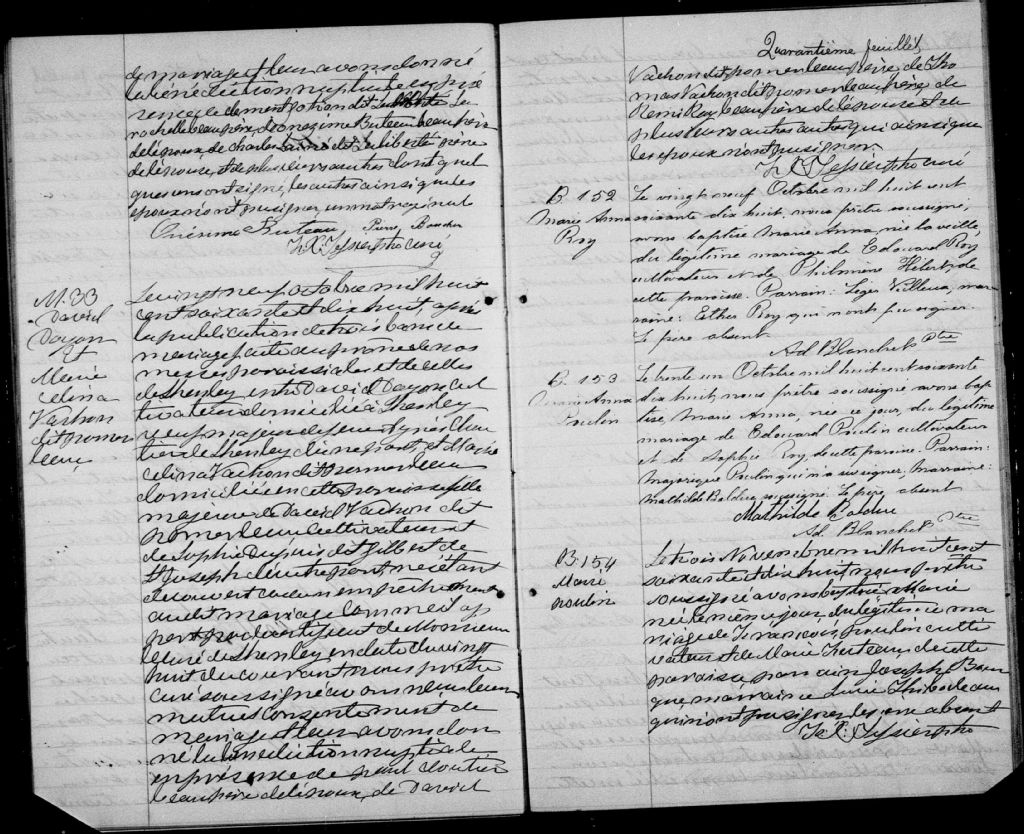 de mariage et leur avons donné
la bénédiction nuptiale en pré
sence de
rochelle beau père, de onezime Buteau beau père
de l'époux, de Charles dit Laliberté père
de l'épouse, et de plusieurs autres dont quel
ques uns ont signé, les autres ainsi que les
époux n'ont pu signer, un mot rayé nul
Onésime Buteau, Pierre Boucher
F.X. Tessier ptre curé
M. 33
David
Doyon
&
Marie
Celina
Vachon
dit pomer
leau
Le vingt neuf octobre mil huit
cent soixante et dix huit, après
la publication de trois bans de
mariage faite au prône de nos
messes paroissiales et de celles
de Shenley entre David Doyon cul
tivateur domicilié à Shenley
veuf majeur de feue Agnès Clou
tier de Shenley d'une part, et Marie
Celina Vachon dit Pomerleau
domiciliée en cette paroisse fille
majeure de David Vachon dit
pomerleau cultivateur et
de Sophie Dupuis dit Gilbert de
St Joseph d'autre part ne s'étant
découvert aucun empêchement
au dit mariage comme il ap
pert par le certificat de Monsieur
le curé de Shenley en date du vingt
huit du courant nous prêtre
curé soussigné avons reçu leur
mutuel consentement de
mariage et leur avons don
né la bénédiction nuptiale
en présence de paul cloutier
beau père de l'époux, de David
Quarantième feuillet,
Vachon dit pomerleau père, de Tho
mas Vachon dit pomerleau frère, de
Rémi Roy beau frère de l'épouse et de
plusieurs autres autres qui ainsi que
les époux n'ont pu signer.
F.X. Tessier ptre curé
B. 152
Marie Anna
Roy
Le vingt neuf Octobre mil huit cent
soixante dix huit, nous prêtre soussigné,
avons baptisé Marie Anna, née la veille,
du légitime mariage de Edouard Roy
cultivateur et de Philomène Hébert, de
cette paroisse. Parrain: Léger Villeux, mar
raine: Esther Roy qui n'ont pu signer.
Le père absent
Ad. Blanchet Ptre
B. 153
Marie Anna
Poulin
Le trente un Octobre mil huit cent soixante
dix huit, nous prêtre soussigné avons bap
tisé, Marie Anna, née ce jour, du légitime
mariage de Edouard Poulin cultivateur
et de Sophie Roy, de cette paroisse. Parrain:
Majorique Poulin qui n'a su signer, Marraine:
Mathilde Bolduc soussigné. Le père absent
Mathilde Bolduc
Ad. Blanchet Ptre
B. 154
Marie
poulin
Le trois Novembre mil huit cent
soixante et dix huit, nous prêtre
soussigné avons baptisé Marie
née le même jour, du légitime ma
riage de François poulin culti
vateur et de Marie Fecteau de cette
paroisse, parrain Joseph
marraine Thibodeau
qui n'ont pu signer, le père absent
F.X. Tessier ptre